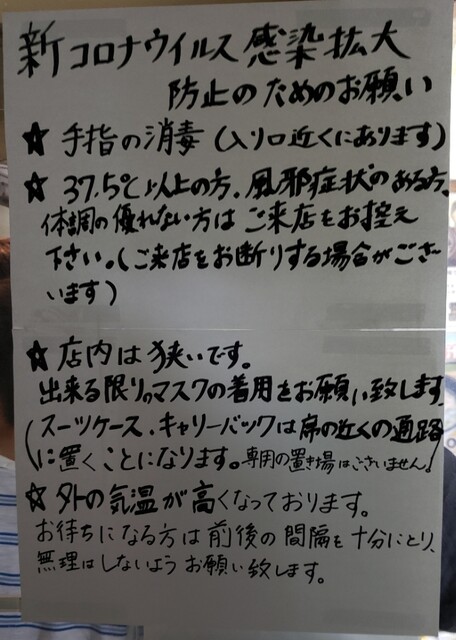 新コロナウイルス感染拡大
防止のためのお願い
★ 手指の消毒(入り口近くにあります)
★ 37.5℃以上の方、風邪症状のある方、
体調の優れない方はご来店をお控え
下さい。(ご来店をお断りする場合がござ
います)
★ 店内は狭いです。
出来る限りマスクの着用をお願い致します
(スーツケース、キャリーバックは席の近くの通路
に置くことになります。専用の置き場はございません!
★ 外の気温が高くなっております。
お待ちになる方は前後の間隔を十分にとり、
無理はしないようお願い致します。